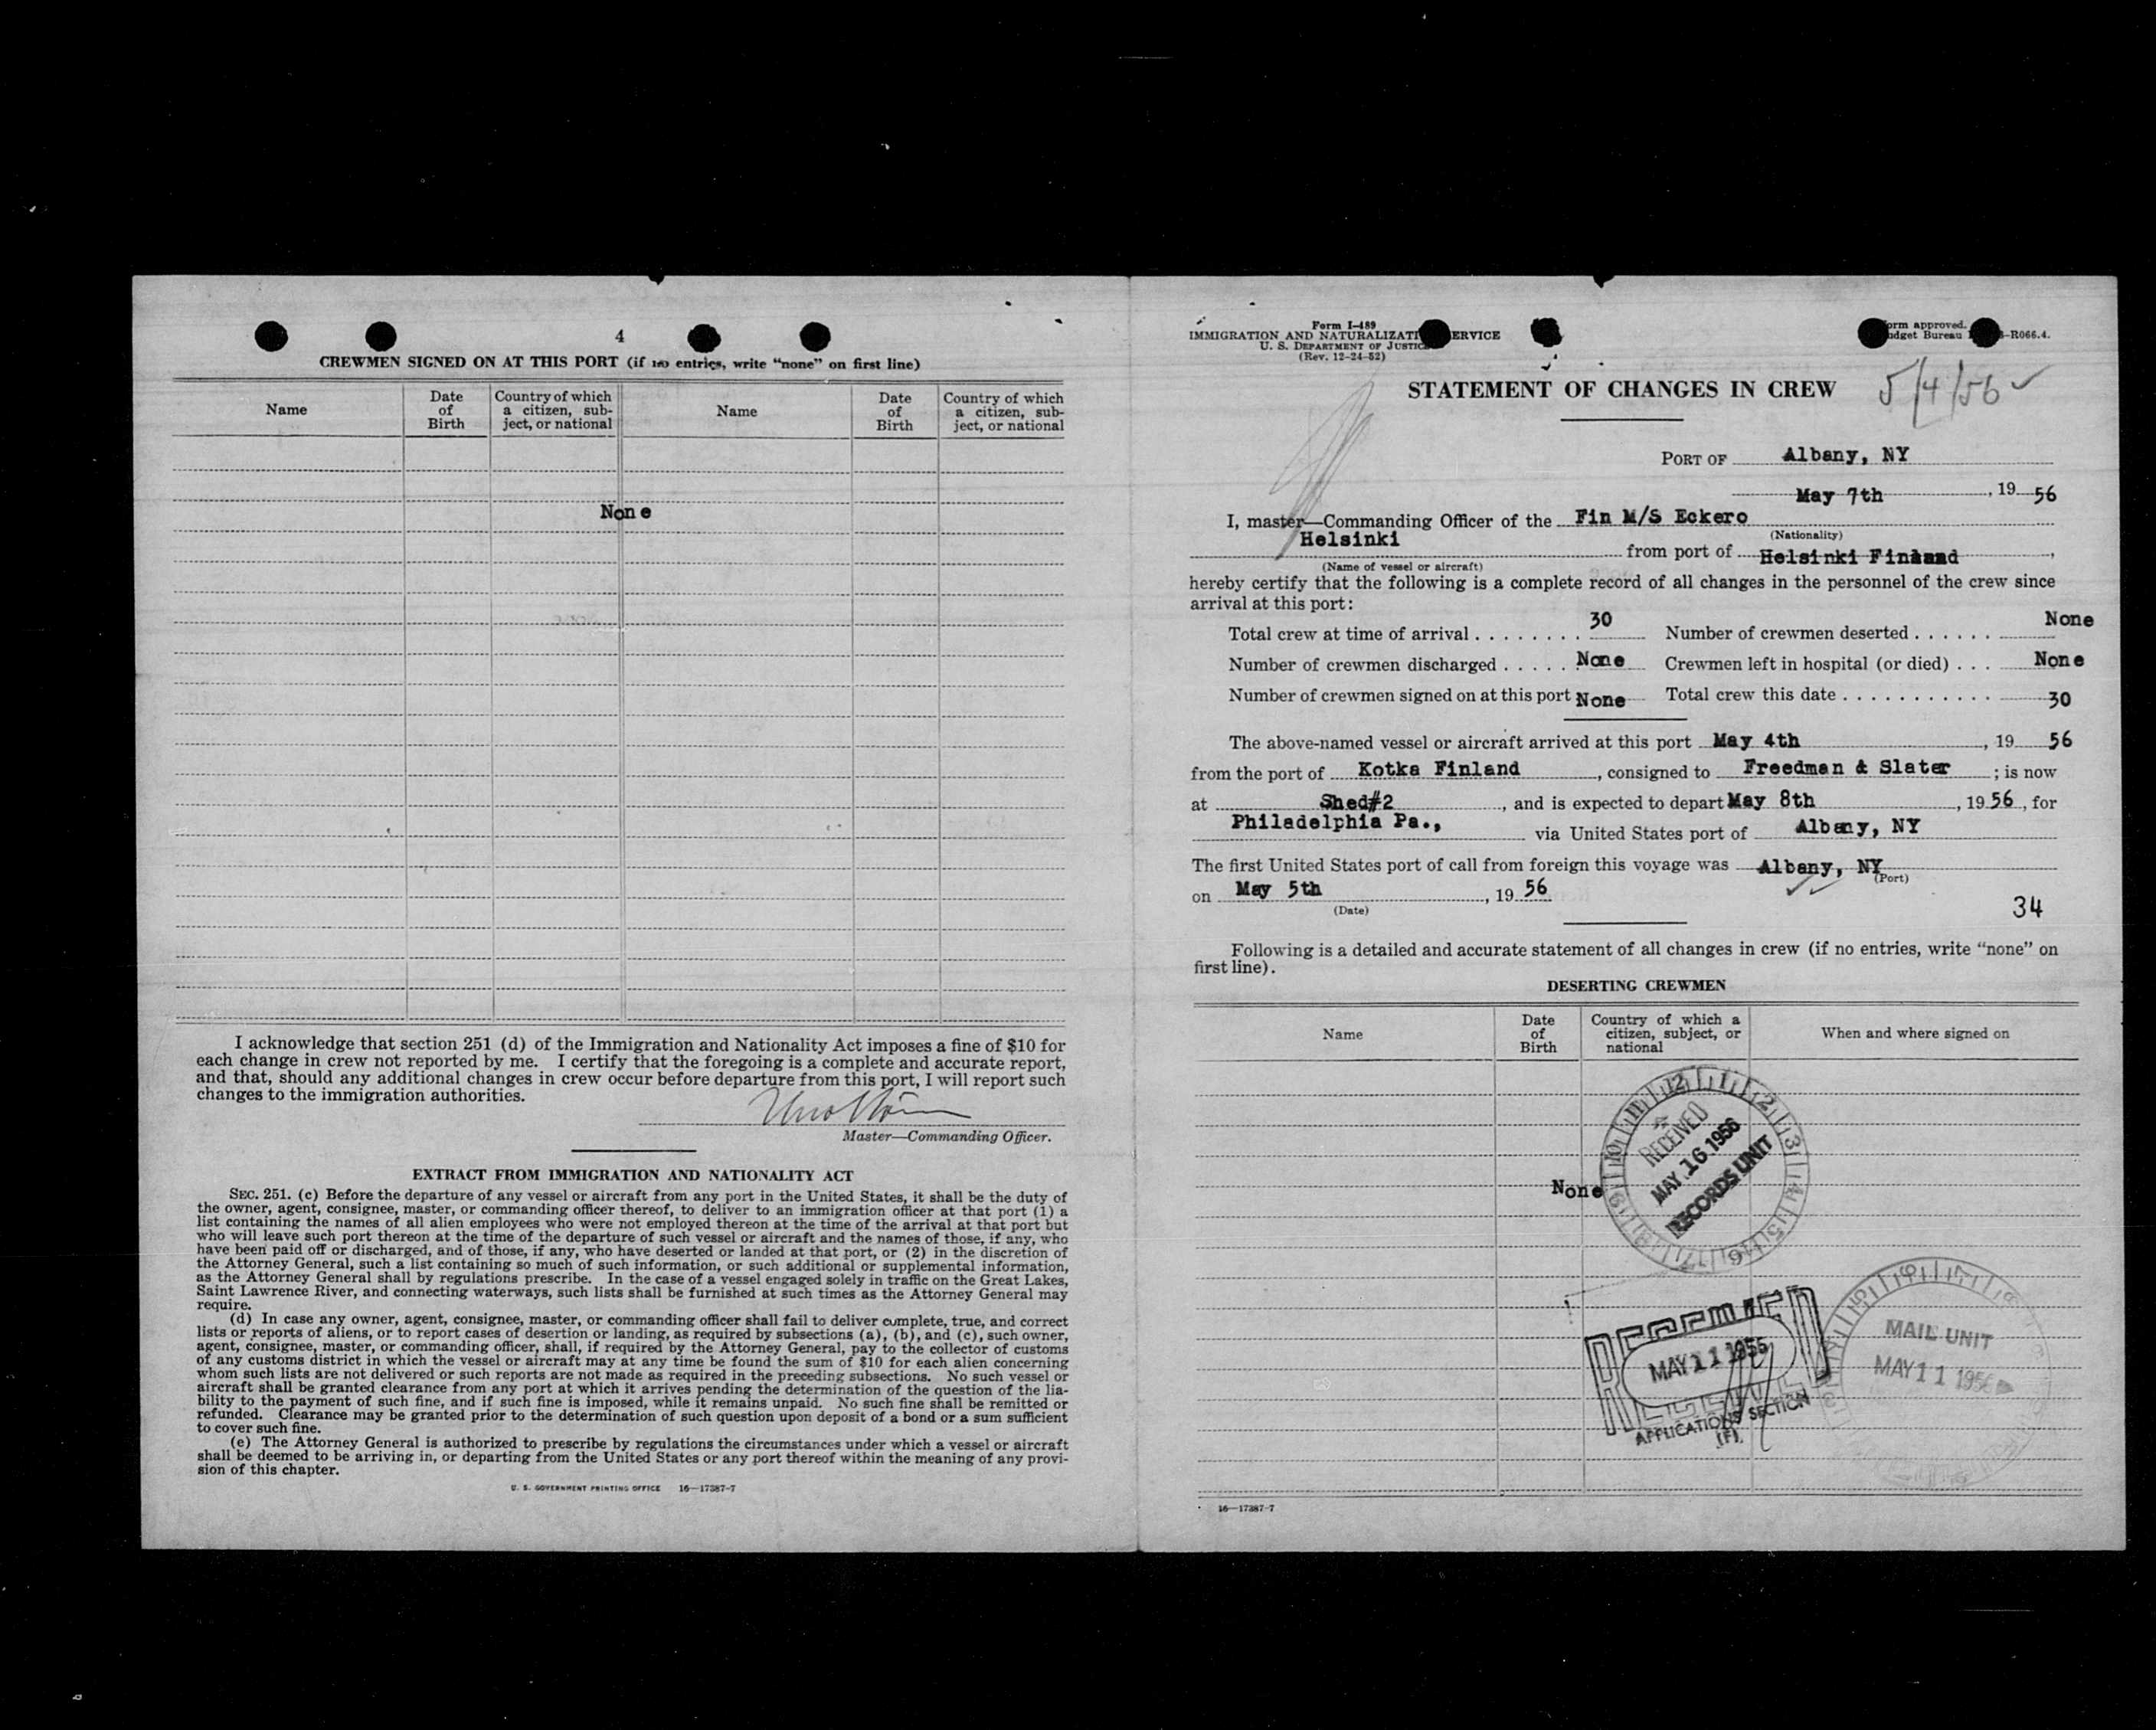 4
CREWMEN SIGNED ON AT THIS PORT (if no entries, write "none" on first line)
Name
Date of Birth
Country of which a citizen, subject, or national
Name
Date of Birth
Country of which a citizen, subject, or national
None
I acknowledge that section 251 (d) of the Immigration and Nationality Act imposes a fine of $10 for
each change in crew not reported by me. I certify that the foregoing is a complete and accurate report,
and that, should any additional changes in crew occur before departure from this port, I will report such
changes to the immigration authorities.
Master—Commanding Officer.
EXTRACT FROM IMMIGRATION AND NATIONALITY ACT
SEC. 251. (c) Before the departure of any vessel or aircraft from any port in the United States, it shall be the duty of
the owner, agent, consignee, master, or commanding officer thereof, to deliver to an immigration officer at that port (1) a
list containing the names of all alien employees who were not employed thereon at the time of the arrival at that port but
who will leave such port thereon at the time of the departure of such vessel or aircraft and the names of those, if any, who
have been paid off or discharged, and of those, if any, who have deserted or landed at that port, or (2) in the discretion of
the Attorney General, such a list containing so much of such information, or such additional or supplemental information,
as the Attorney General shall by regulations prescribe. In the case of a vessel engaged solely in traffic on the Great Lakes,
Saint Lawrence River, and connecting waterways, such lists shall be furnished at such times as the Attorney General may
require.
(d) In case any owner, agent, consignee, master, or commanding officer shall fail to deliver complete, true, and correct
lists or reports of aliens, or to report cases of desertion or landing, as required by subsections (a), (b), and (c), such owner,
agent, consignee, master, or commanding officer, shall, if required by the Attorney General, pay to the collector of customs
of any customs district in which the vessel or aircraft may at any time be found the sum of $10 for each alien concerning
whom such lists are not delivered or such reports are not made as required in the preceding subsections. No such vessel or
aircraft shall be granted clearance from any port at which it arrives pending the determination of the question of the lia-
bility to the payment of such fine, and if such fine is imposed, while it remains unpaid. No such fine shall be remitted or
refunded. Clearance may be granted prior to the determination of such question upon deposit of a bond or a sum sufficient
to cover such fine.
(e) The Attorney General is authorized to prescribe by regulations the circumstances under which a vessel or aircraft
shall be deemed to be arriving in, or departing from the United States or any port thereof within the meaning of any provi-
sion of this chapter.
U. S. GOVERNMENT PRINTING OFFICE 16—17387-7
Form I-489
IMMIGRATION AND NATURALIZATI ERVICE
U. S. DEPARTMENT OF JUSTIC
(Rev. 12-24-52)
orm approved.
udget Bureau -R066.4.
STATEMENT OF CHANGES IN CREW
5/4/56 ✓
PORT OF Albany, NY
May 7th, 19 56
I, master—Commanding Officer of the Fin M/S Eckero
(Nationality)
Helsinki from port of Helsinki Finland,
(Name of vessel or aircraft)
hereby certify that the following is a complete record of all changes in the personnel of the crew since
arrival at this port:
Total crew at time of arrival ........ 30 Number of crewmen deserted ...... None
Number of crewmen discharged ..... None Crewmen left in hospital (or died) ... None
Number of crewmen signed on at this port None Total crew this date ............ 30
The above-named vessel or aircraft arrived at this port May 4th, 19 56
from the port of Kotka Finland, consigned to Freedman & Slater; is now
at Shed#2, and is expected to depart May 8th, 19 56, for
Philadelphia Pa., via United States port of Albany, NY
The first United States port of call from foreign this voyage was Albany, NY
(Port)
on May 5th, 19 56
(Date)
34
Following is a detailed and accurate statement of all changes in crew (if no entries, write "none" on
first line).
DESERTING CREWMEN
Name
Date of Birth
Country of which a citizen, subject, or national
When and where signed on
None
RECEIVED
MAY 16 1956
RECORDS UNIT
RECEIVED
MAY 11 1956
APPLICATIONS SECTION
(F)
MAIL UNIT
MAY 11 1956
16—17387-7